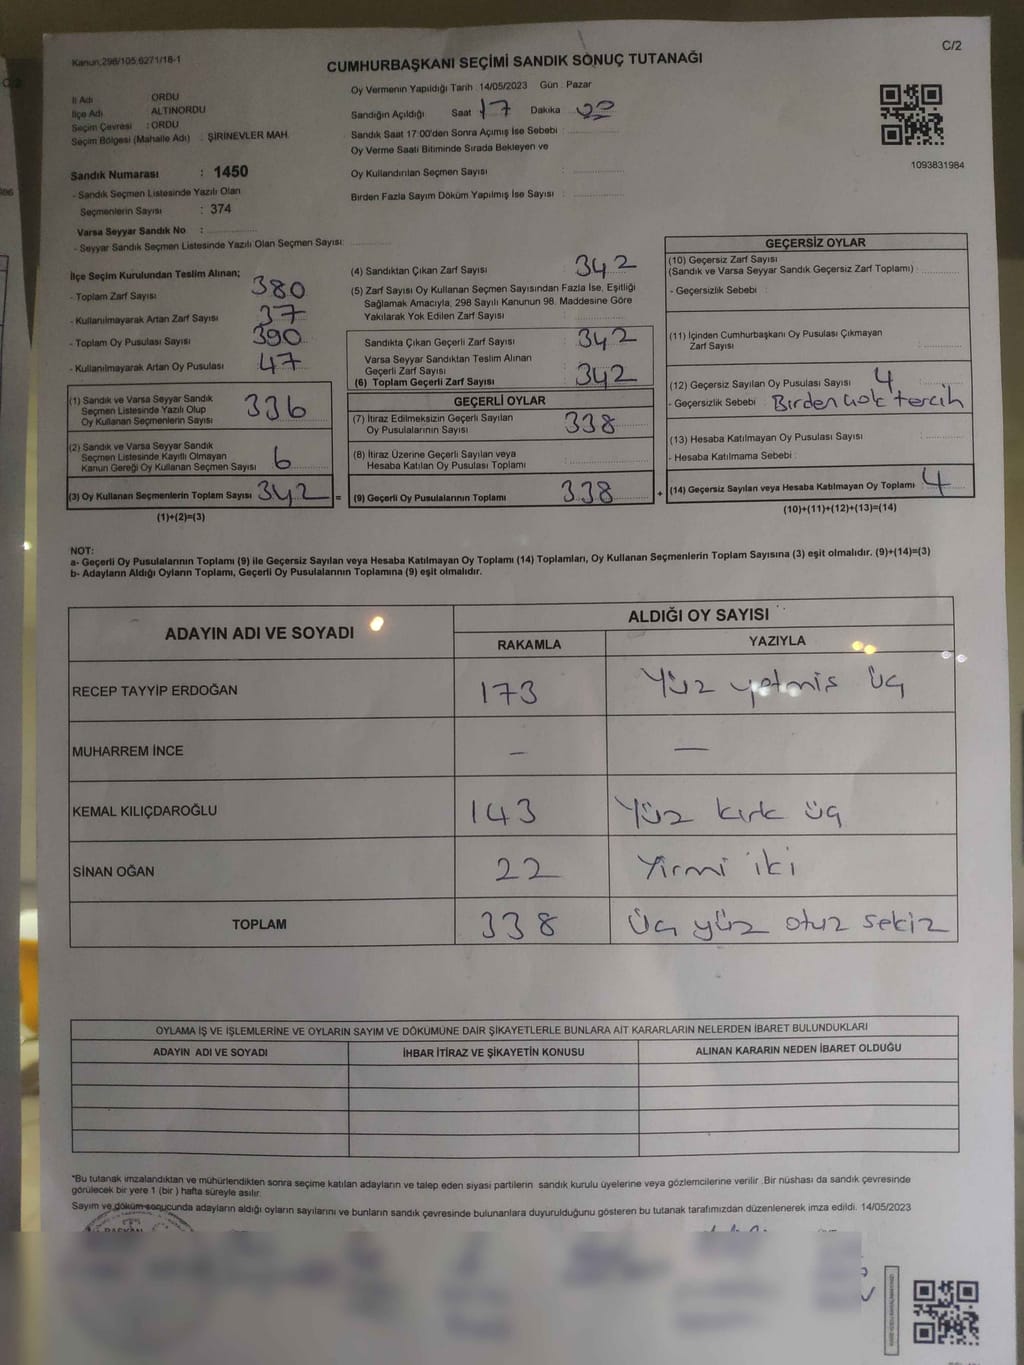 C/2
Kanun;298/105,6271/18-1
CUMHURBAŞKANI SEÇİMİ SANDIK SONUÇ TUTANAĞI
İl Adı ORDU
İlçe Adı ALTINORDU
Seçim Çevresi : ORDU
Seçim Bölgesi (Mahalle Adı) : ŞİRİNEVLER MAH.
Oy Vermenin Yapıldığı Tarih : 14/05/2023 Gün : Pazar
Sandığın Açıldığı Saat 17 Dakika
Sandık Saat 17:00'den Sonra Açımış İse Sebebi :
Oy Verme Saati Bitiminde Sırada Bekleyen ve
Oy Kullandırılan Seçmen Sayısı :
Birden Fazla Sayım Döküm Yapılmış İse Sayısı :
1093831984
Sandık Numarası : 1450
- Sandık Seçmen Listesinde Yazılı Olan
Seçmenlerin Sayısı : 374
Varsa Seyyar Sandık No :
- Seyyar Sandık Seçmen Listesinde Yazılı Olan Seçmen Sayısı:
İlçe Seçim Kurulundan Teslim Alınan;
- Toplam Zarf Sayısı 380
- Kullanılmayarak Artan Zarf Sayısı 37
- Toplam Oy Pusulası Sayısı 390
- Kullanılmayarak Artan Oy Pusulası 47
(1) Sandık ve Varsa Seyyar Sandık
Seçmen Listesinde Yazılı Olup
Oy Kullanan Seçmenlerin Sayısı 336
(2) Sandık ve Varsa Seyyar Sandık
Seçmen Listesinde Kayıtlı Olmayan
Kanun Gereği Oy Kullanan Seçmen Sayısı 6
(3) Oy Kullanan Seçmenlerin Toplam Sayısı 342 =
(1)+(2)=(3)
(4) Sandıktan Çıkan Zarf Sayısı : 342
(5) Zarf Sayısı Oy Kullanan Seçmen Sayısından Fazla İse, Eşitliği
Sağlamak Amacıyla, 298 Sayılı Kanunun 98. Maddesine Göre
Yakılarak Yok Edilen Zarf Sayısı :
Sandıkta Çıkan Geçerli Zarf Sayısı : 342
Varsa Seyyar Sandıktan Teslim Alınan
Geçerli Zarf Sayısı :
(6) Toplam Geçerli Zarf Sayısı 342
GEÇERLİ OYLAR
(7) İtiraz Edilmeksizin Geçerli Sayılan
Oy Pusulalarının Sayısı 338
(8) İtiraz Üzerine Geçerli Sayılan veya
Hesaba Katılan Oy Pusulası Toplamı :
(9) Geçerli Oy Pusulalarının Toplamı 338 +
GEÇERSİZ OYLAR
(10) Geçersiz Zarf Sayısı
(Sandık ve Varsa Seyyar Sandık Geçersiz Zarf Toplamı) :
- Geçersizlik Sebebi :
(11) İçinden Cumhurbaşkanı Oy Pusulası Çıkmayan
Zarf Sayısı :
(12) Geçersiz Sayılan Oy Pusulası Sayısı : 4
- Geçersizlik Sebebi : Birden çok tercih
(13) Hesaba Katılmayan Oy Pusulası Sayısı :
- Hesaba Katılmama Sebebi :
(14) Geçersiz Sayılan veya Hesaba Katılmayan Oy Toplamı : 4
(10)+(11)+(12)+(13)=(14)
NOT:
a- Geçerli Oy Pusulalarının Toplamı (9) ile Geçersiz Sayılan veya Hesaba Katılmayan Oy Toplamı (14) Toplamları, Oy Kullanan Seçmenlerin Toplam Sayısına (3) eşit olmalıdır. (9)+(14)=(3)
b- Adayların Aldığı Oyların Toplamı, Geçerli Oy Pusulalarının Toplamına (9) eşit olmalıdır.
ADAYIN ADI VE SOYADI ALDIĞI OY SAYISI
RAKAMLA YAZIYLA
RECEP TAYYİP ERDOĞAN 173 Yüz yetmis üç
MUHARREM İNCE - -
KEMAL KILIÇDAROĞLU 143 Yüz kırk üç
SİNAN OĞAN 22 Yirmi iki
TOPLAM 338 üç yüz otuz sekiz
OYLAMA İŞ VE İŞLEMLERİNE VE OYLARIN SAYIM VE DÖKÜMÜNE DAİR ŞİKAYETLERLE BUNLARA AİT KARARLARIN NELERDEN İBARET BULUNDUKLARI
ADAYIN ADI VE SOYADI İHBAR İTİRAZ VE ŞİKAYETİN KONUSU ALINAN KARARIN NEDEN İBARET OLDUĞU
"Bu tutanak imzalandıktan ve mühürlendikten sonra seçime katılan adayların ve talep eden siyasi partilerin sandık kurulu üyelerine veya gözlemcilerine verilir .Bir nüshası da sandık çevresinde
görülecek bir yere 1 (bir ) hafta süreyle asılır.
Sayım ve döküm sonucunda adayların aldığı oyların sayılarını ve bunların sandık çevresinde bulunanlara duyurulduğunu gösteren bu tutanak tarafımızdan düzenlenerek imza edildi. 14/05/2023
BAŞKAN